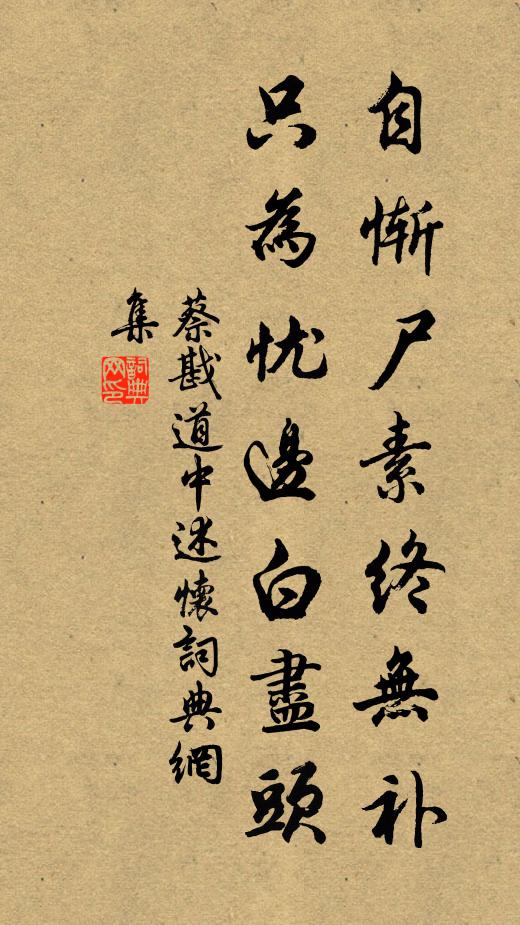 自惭尸素終無补
只為忧邊白盡頭
蔡戡道中述懷詞典網
集
詞典
网印